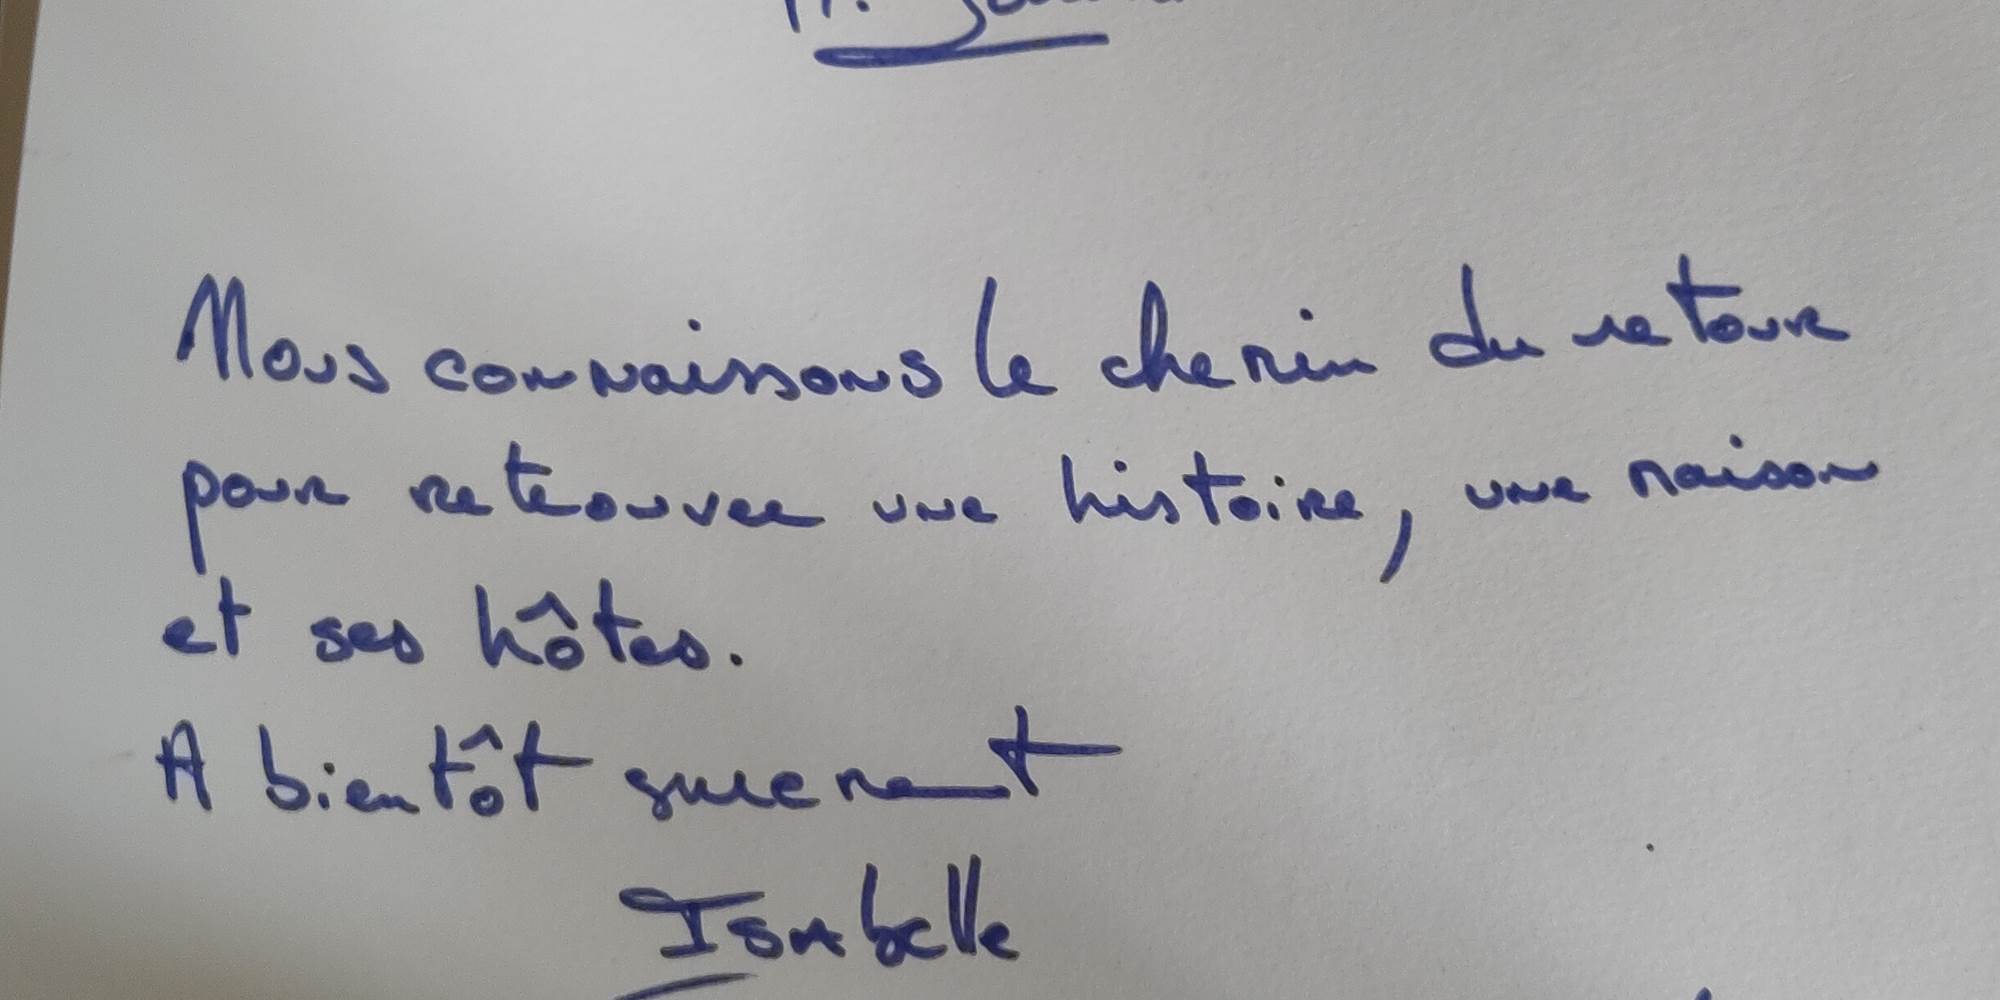 Nous connaissons le chemin du retour
pour retrouver une histoire, une maison
et ses hôtes.
A bientôt surement
Isabelle